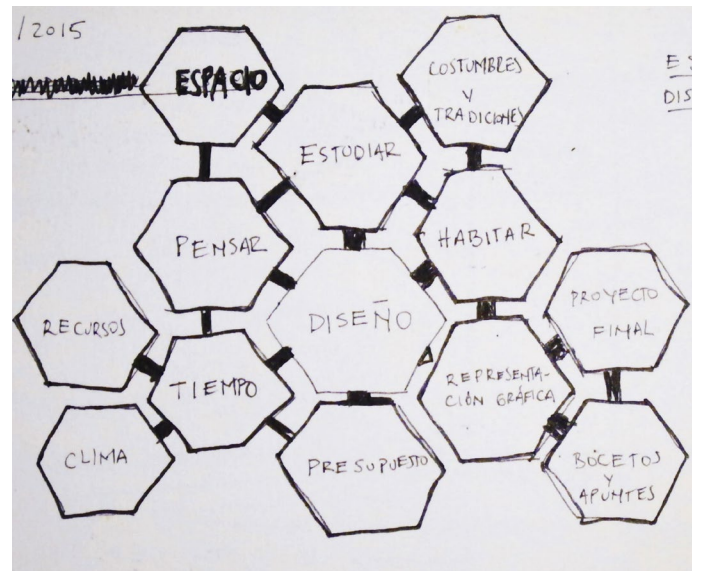 /2015
ESPACIO
COSTUMBRES
Y
TRADICIONES
ES
DIS
ESTUDIAR
PENSAR
HABITAR
RECURSOS
DISEÑO
PROYECTO
FINAL
TIEMPO
REPRESENTA-
CIÓN GRÁFICA
CLIMA
PRESUPUESTO
BOCETOS
Y
APUNTES